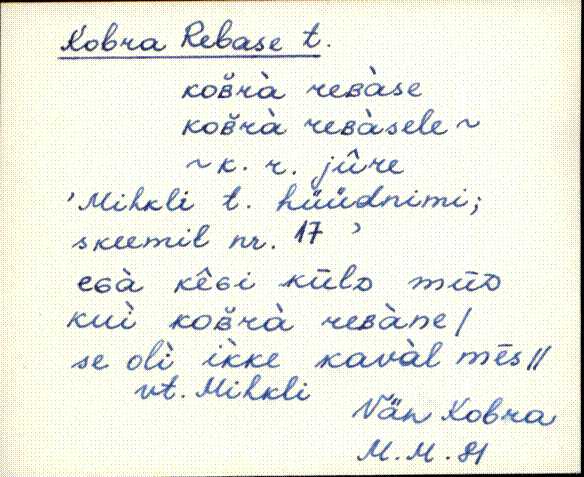 Kobra Rebase t.
koʙ̆rà reʙàse
koʙ̆rà reʙàsele ~
~ k. r. jûre
'Mihkli t. hüüdnimi;
skeemil nr. 17'
eɢà kêɢi kūlᴅ mūᴅ
kuì koʙ̆rà reʙàne/
se olì ìkke kavàl mēs//
vt. Mihkli
Vän Kobra
M.M. 81